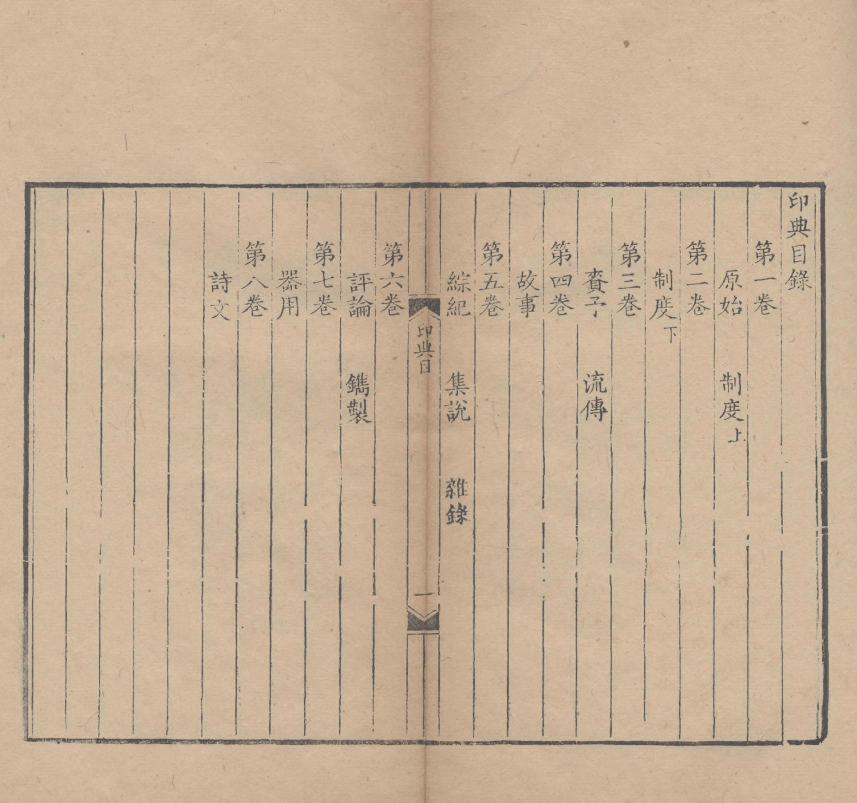 印典目錄
第一卷
原始　制度上
第二卷
制度下
第三卷
賚予　流傳
第四卷
故事
第五卷
綜紀　集說　雜錄
印典目　一
第六卷
評論　鐫製
第七卷
器用
第八卷
詩文